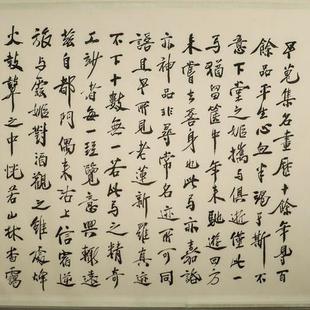 蒐集名畫歷十餘年得百
餘品平生心血半竭于斯不
意下堂之姬攜与俱逝僅此一
馬猶留篋中年來馳逐四方
未嘗去吾身也与亦嘉
亦神品非尋常名迹所可同
語且所見老蓮新羅真迹
不下十數無一若此与之精奇
工妙者每一經覽意興輒遠
茲自都門偶來沽上信宿逆
旅与靈姬對酒觀之雖處烽
火鼓聲之中恍若山林杳靄